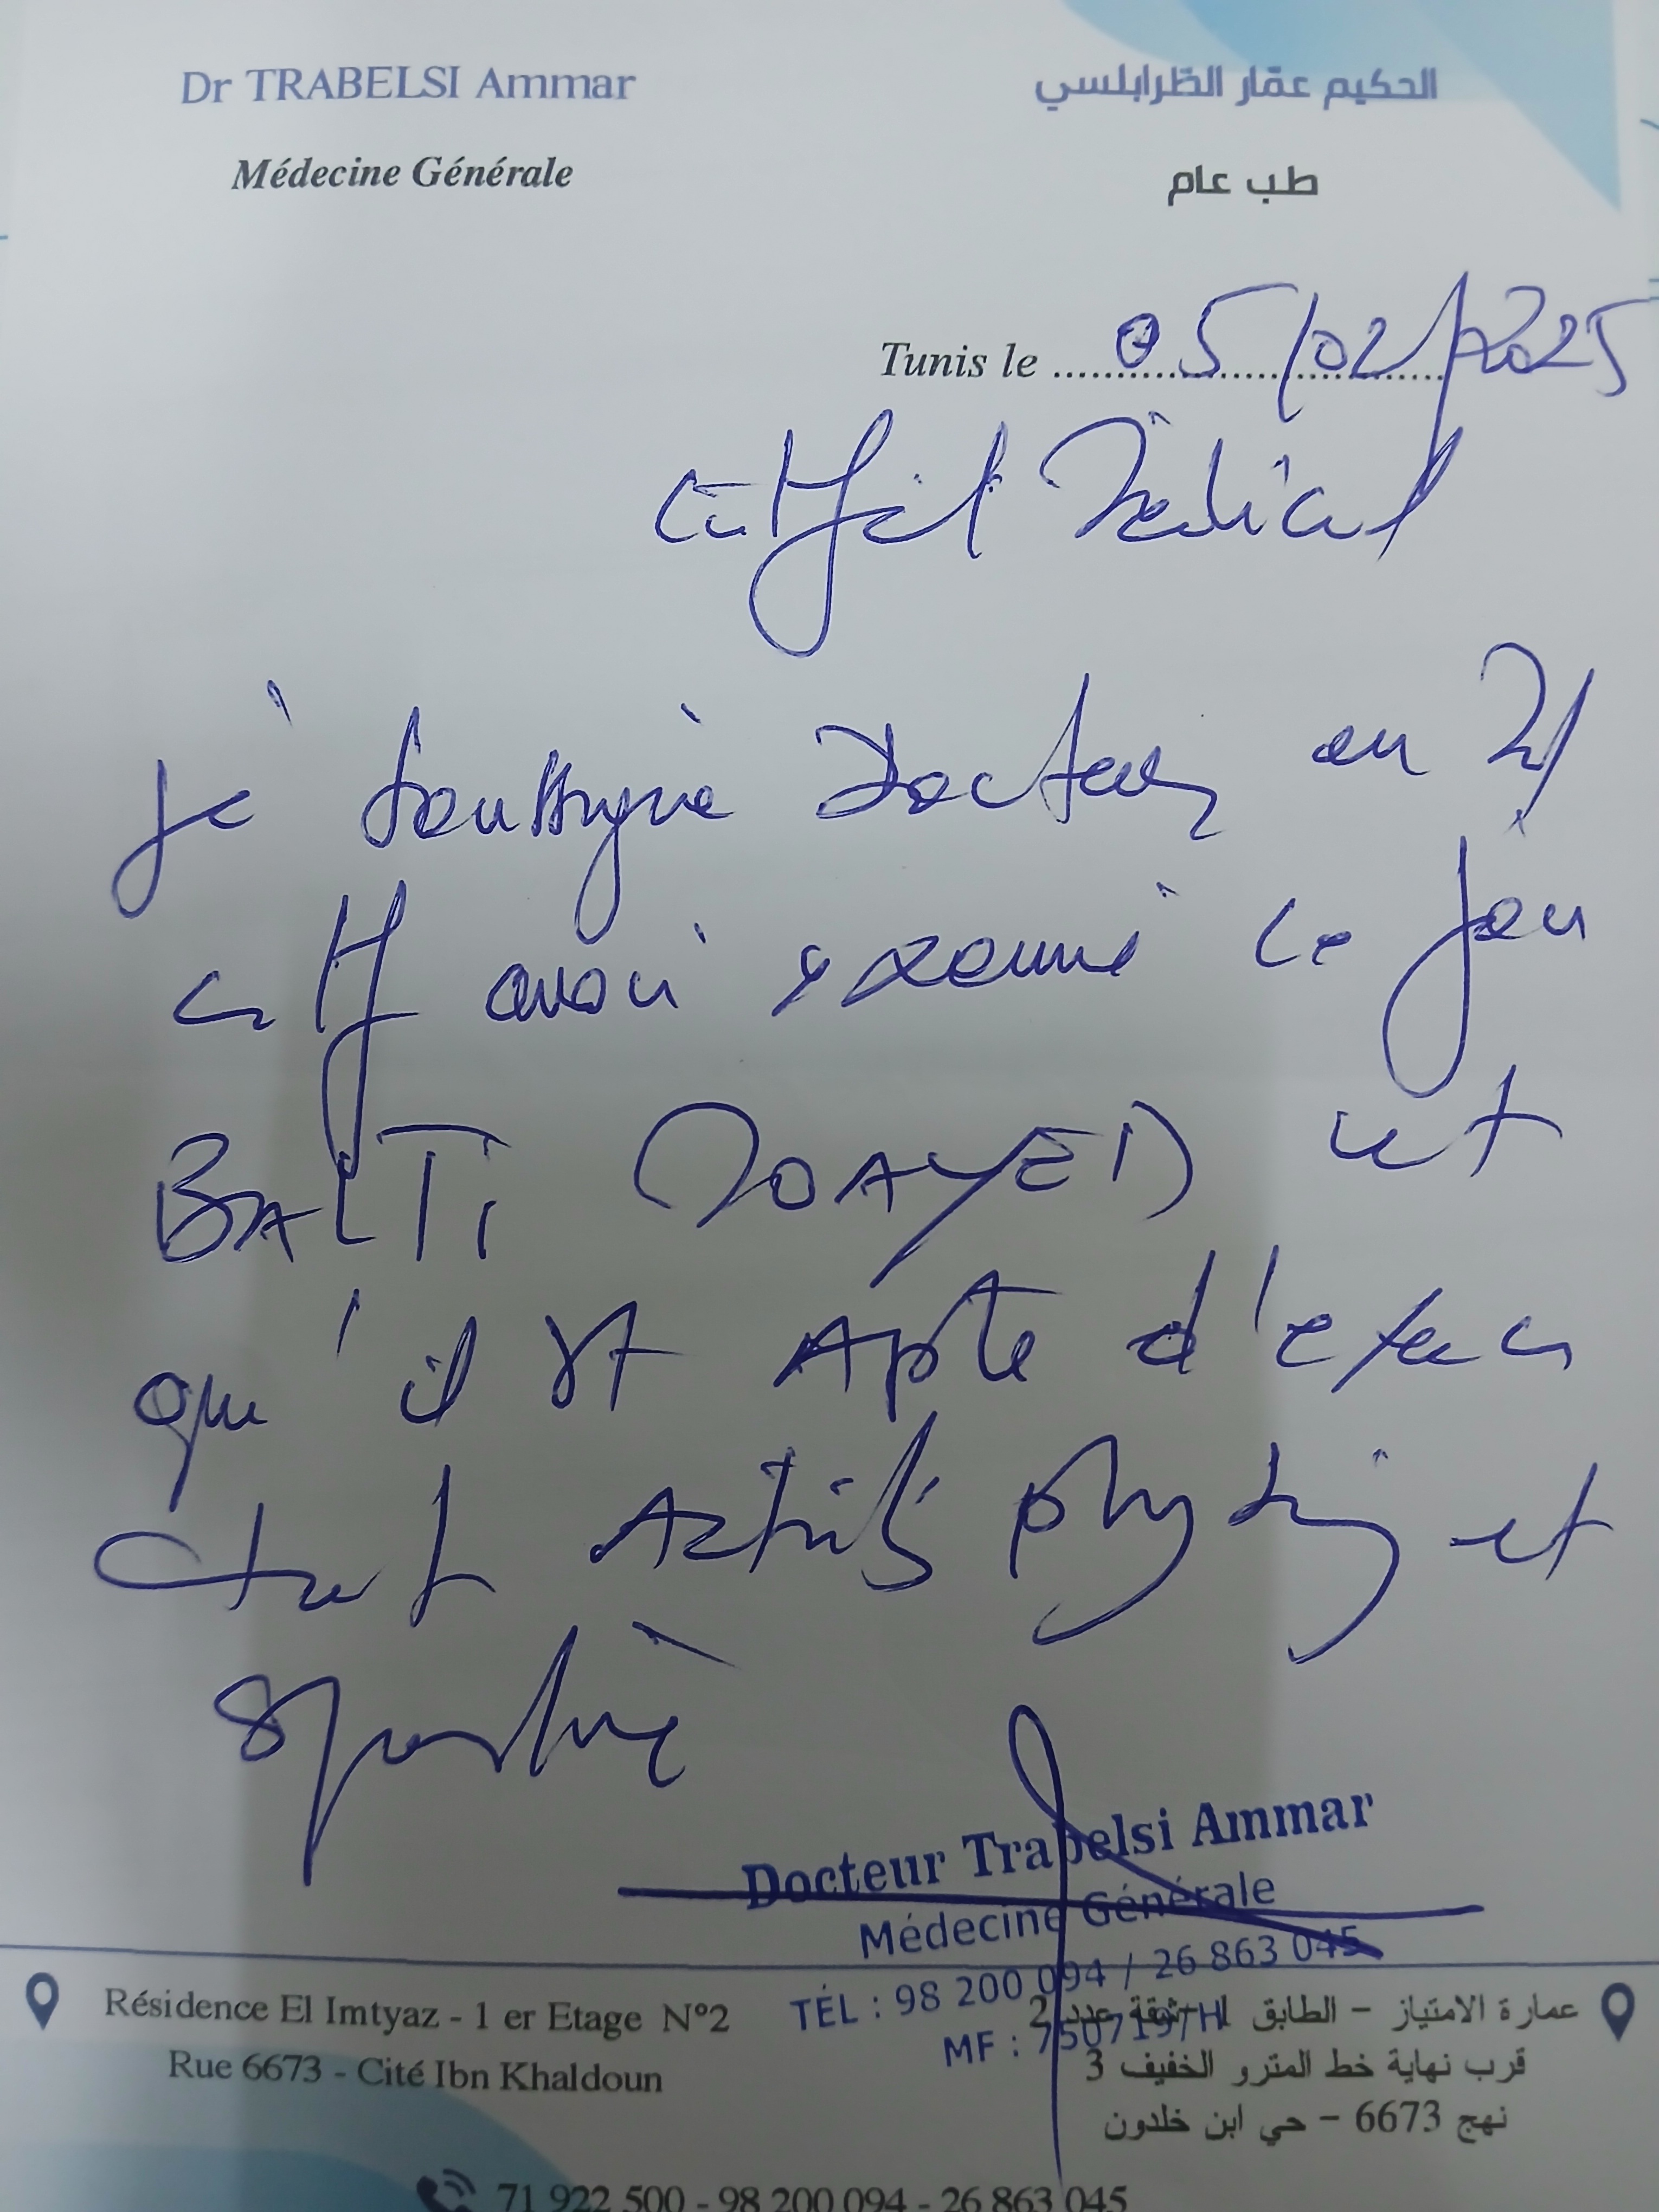 Dr TRABELSI Ammar
الحكيم عمّار الطّرابلسي
Médecine Générale
طب عام
Tunis le 05/02/2025
Certificat Médical
Je soussigné Docteur en
certif avoir examiné ce jour
BALTI MOAYED et
qu'il est Apte d'exercer
tout Activité physique et
sportive
Docteur Trabelsi Ammar
Médecine Générale
TÉL : 98 200 094 / 26 863 045
MF : 750719/H
Résidence El Imtyaz - 1 er Etage N°2
Rue 6673 - Cité Ibn Khaldoun
عمارة الامتياز – الطابق 1 – شقة عدد 2
قرب نهاية خط المترو الخفيف 3
نهج 6673 – حي ابن خلدون
71 922 500 - 98 200 094 - 26 863 045